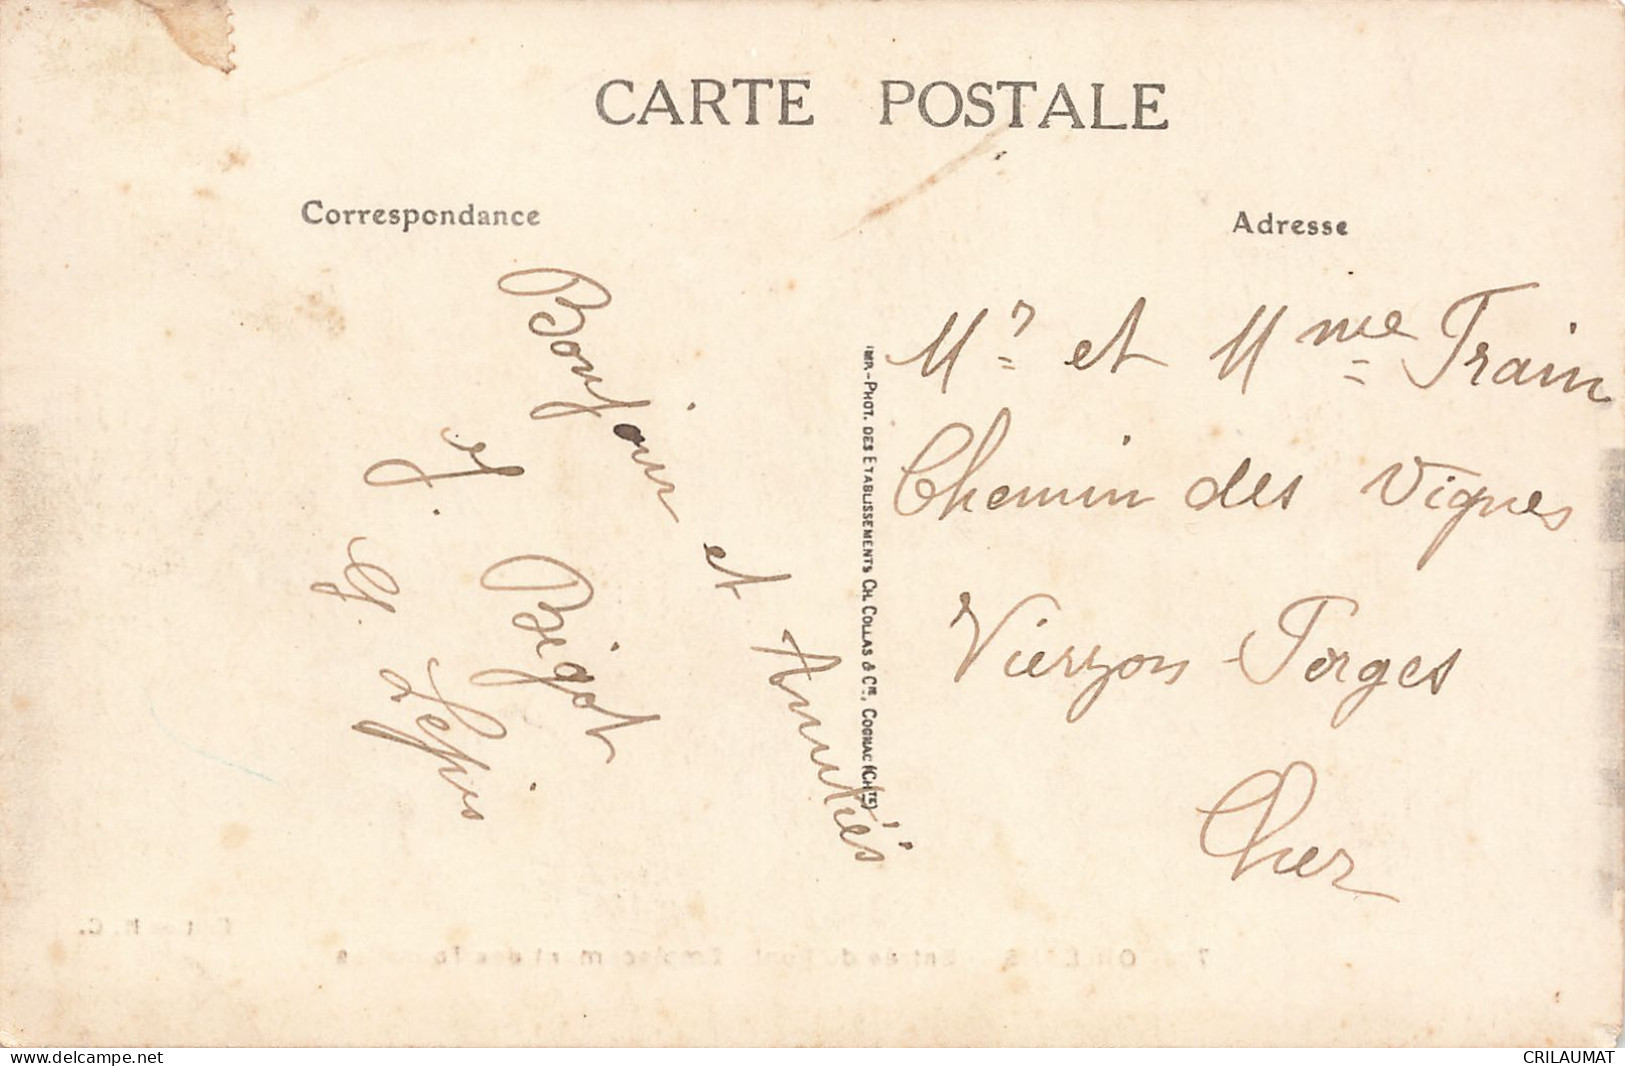 CARTE POSTALE
Correspondance
Adresse
Bonjour et Amitiés
J. Bigot
G.
Mr et Mme Train
Chemin des Vignes
Vierzon-Forges
Cher
IMP.-PHOT. DES ETABLISSEMENTS CH. COLLAS & Cie, COGNAC (Chte)
delcampe.net
CRILAUMAT